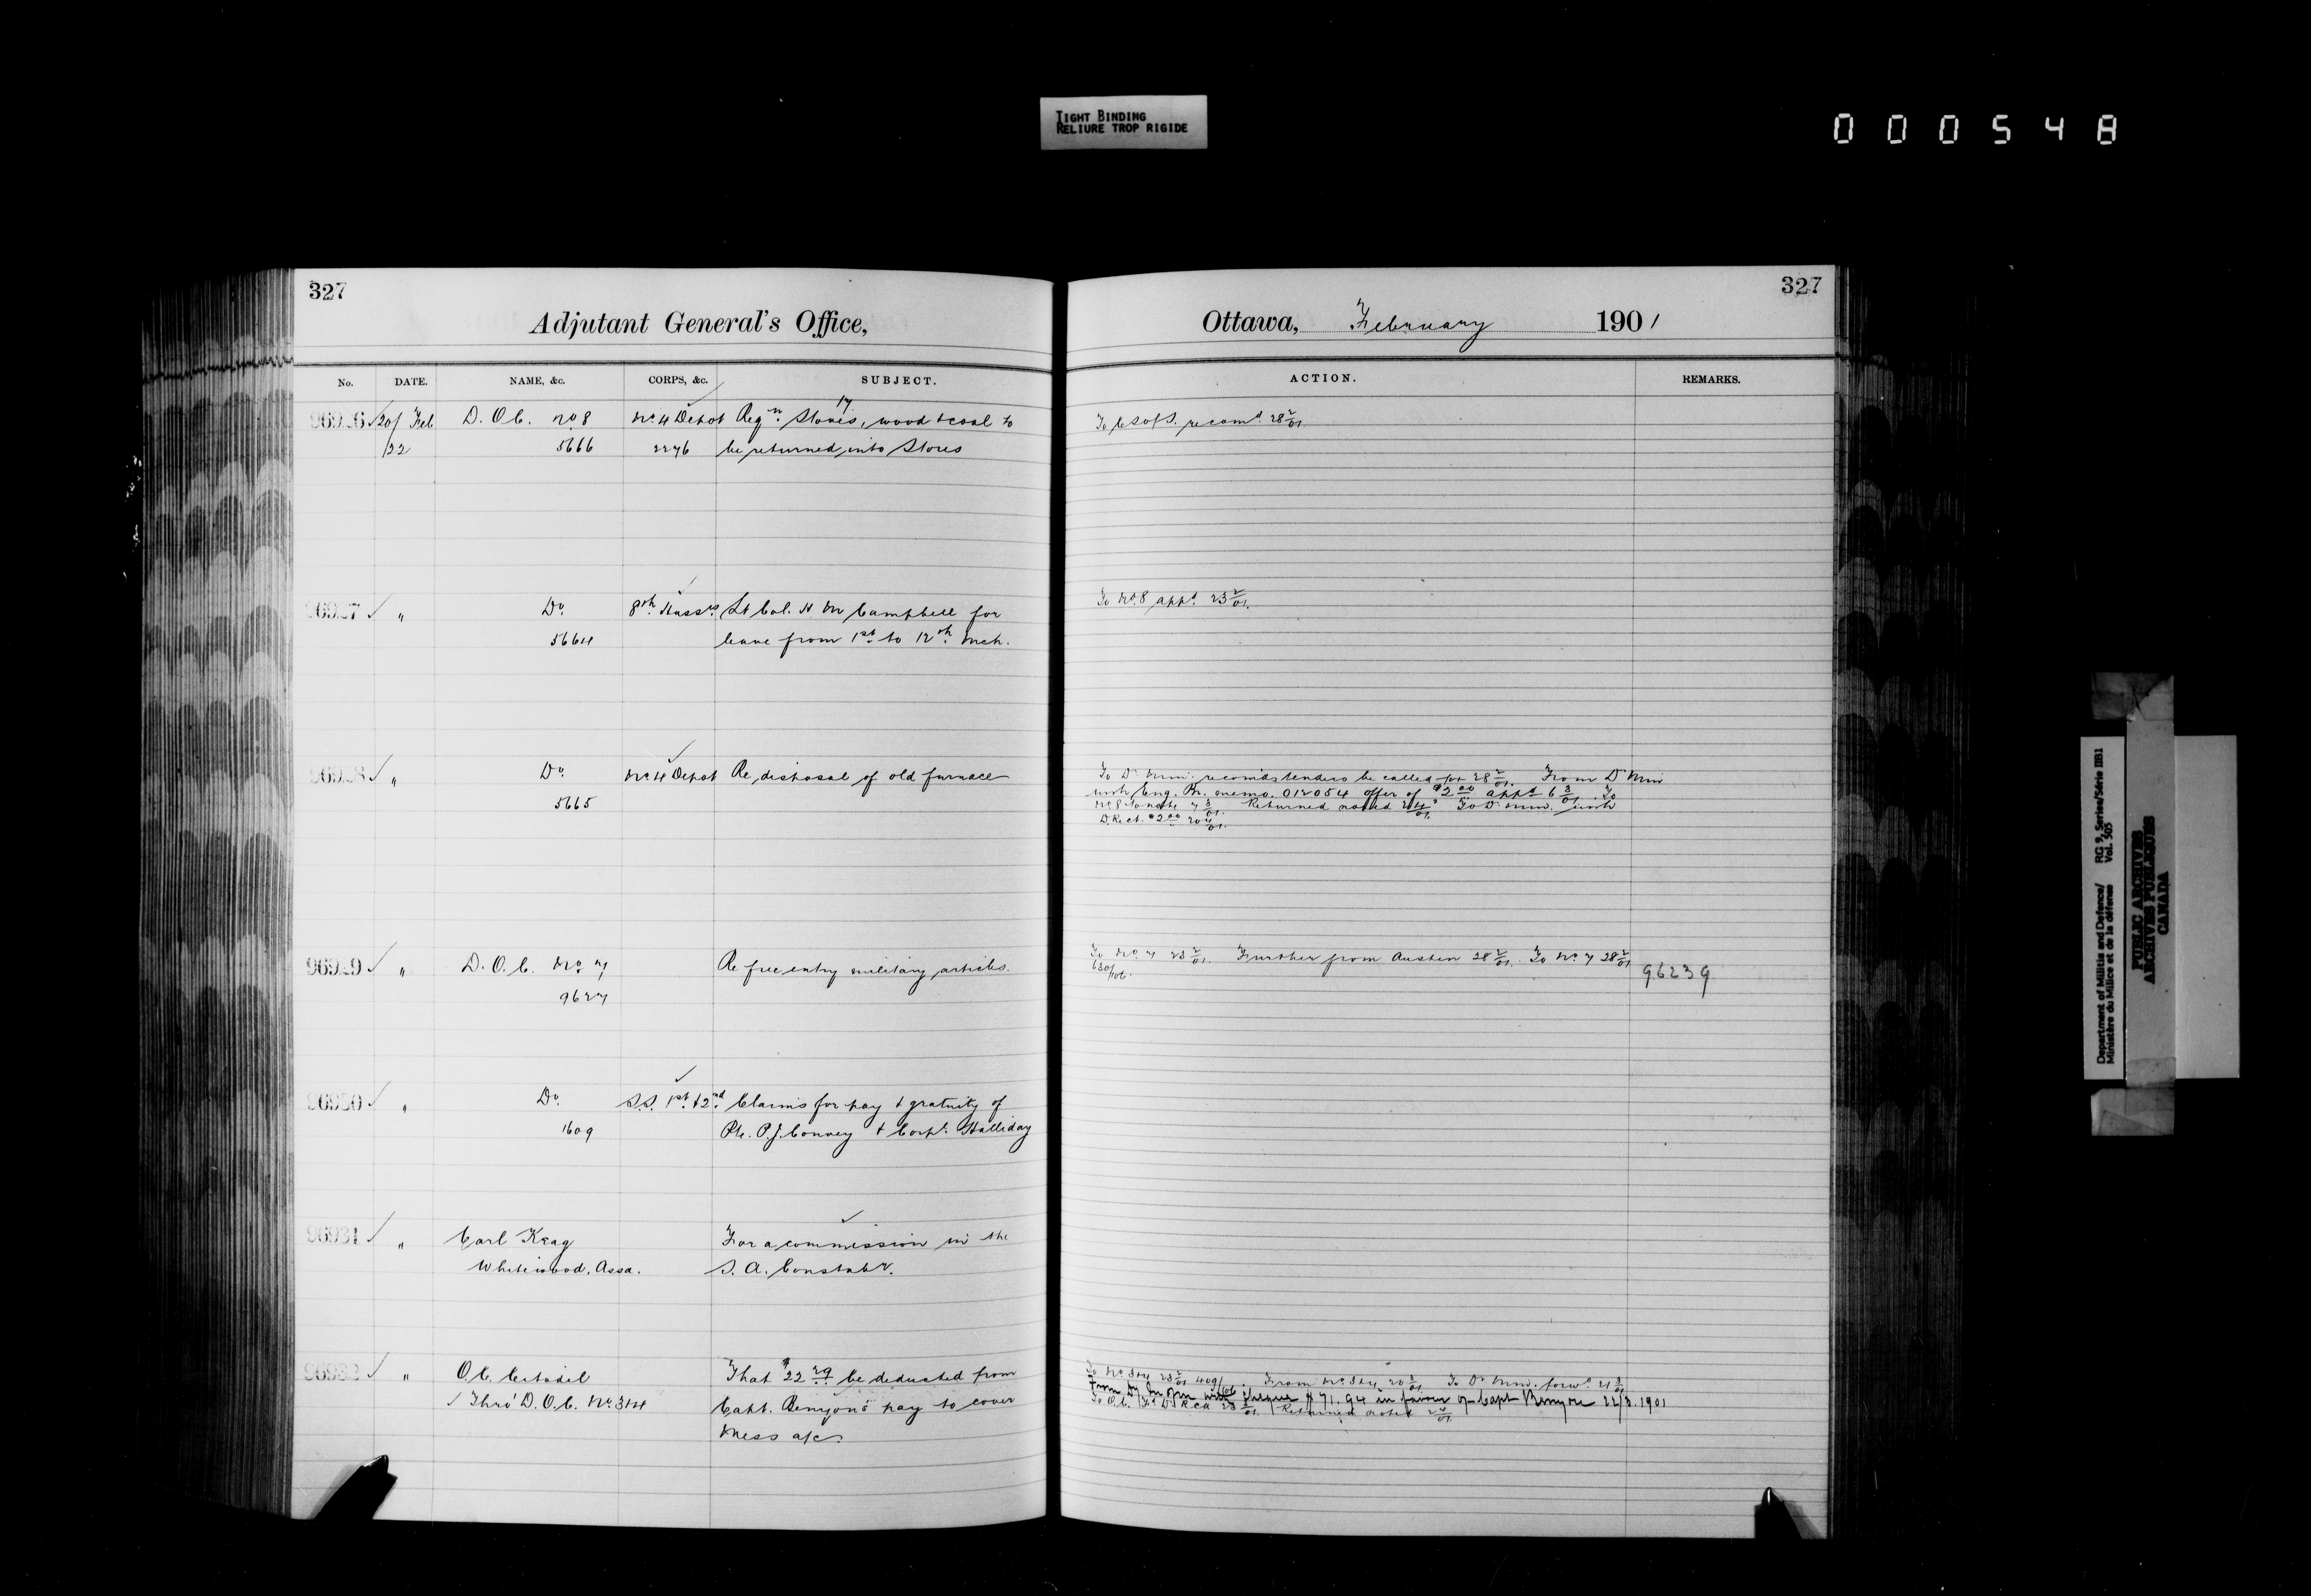 TIGHT BINDING
RELIURE TROP RIGIDE
000548
327
Adjutant General's Office,
No. DATE. NAME, &c. CORPS, &c. SUBJECT.
96926 20/Feb D. O. C. No 8 No. 4 Depot Reqn. Stoves, wood & coal to
/22 5666 2276 be returned into Stores
96927 " Do. 8th Hussrs Lt Col. H Mc Campbell for
5664 leave from 1st to 12th Mch.
96928 " Do. No. 4 Depot Re disposal of old furnace
5665
96929 " D. O. C. No. 7 Re free entry military articles.
9627
96930 " Do. S.S. 1st & 2nd Claims for pay & gratuity of
1609 Pte. P.J. Convey & Corpl. Halliday
96931 " Carl Krag For a commission in the
Whitewood, Assa. S. A. Constaby.
96932 " O.C. Citadel That $22 29 be deducted from
Thro' D. O. C. No. 3&4 Capt. Benyon's pay to cover
Mess a/c.
327
Ottawa, February 1901
ACTION. REMARKS.
To C S of S. recomd. 28 2/01.
To No. 8 appd. 23 2/01.
To D. Min. recomds tenders be called for 28 2/01. From D Min
with Eng. Br. memo. 012054 offer of $2 00 appd 6 3/01. To
No. 8 to note 7 3/01. Returned noted 2 4/01. To D. Min. with
D. Rect. $2 00 20 4/01.
To No. 7 23 2/01. Further from Austen 28 2/01. To No. 7 28 2/01 96239
To No. 3&4 23 2/01 From No. 3&4 20 3/01. To D. Min. forwd. 21 3/01
From D/ Min with cheque $71.94 in favour of Capt Benyon 22/3.1901
To O.C. R C A 23 3/01. Returned noted 2 4/01.
Department of Militia and Defence/ RG 9, Series/Série IIB1
Ministère du Milice et de la défense Vol. 505
PUBLIC ARCHIVES
ARCHIVES PUBLIQUES
CANADA